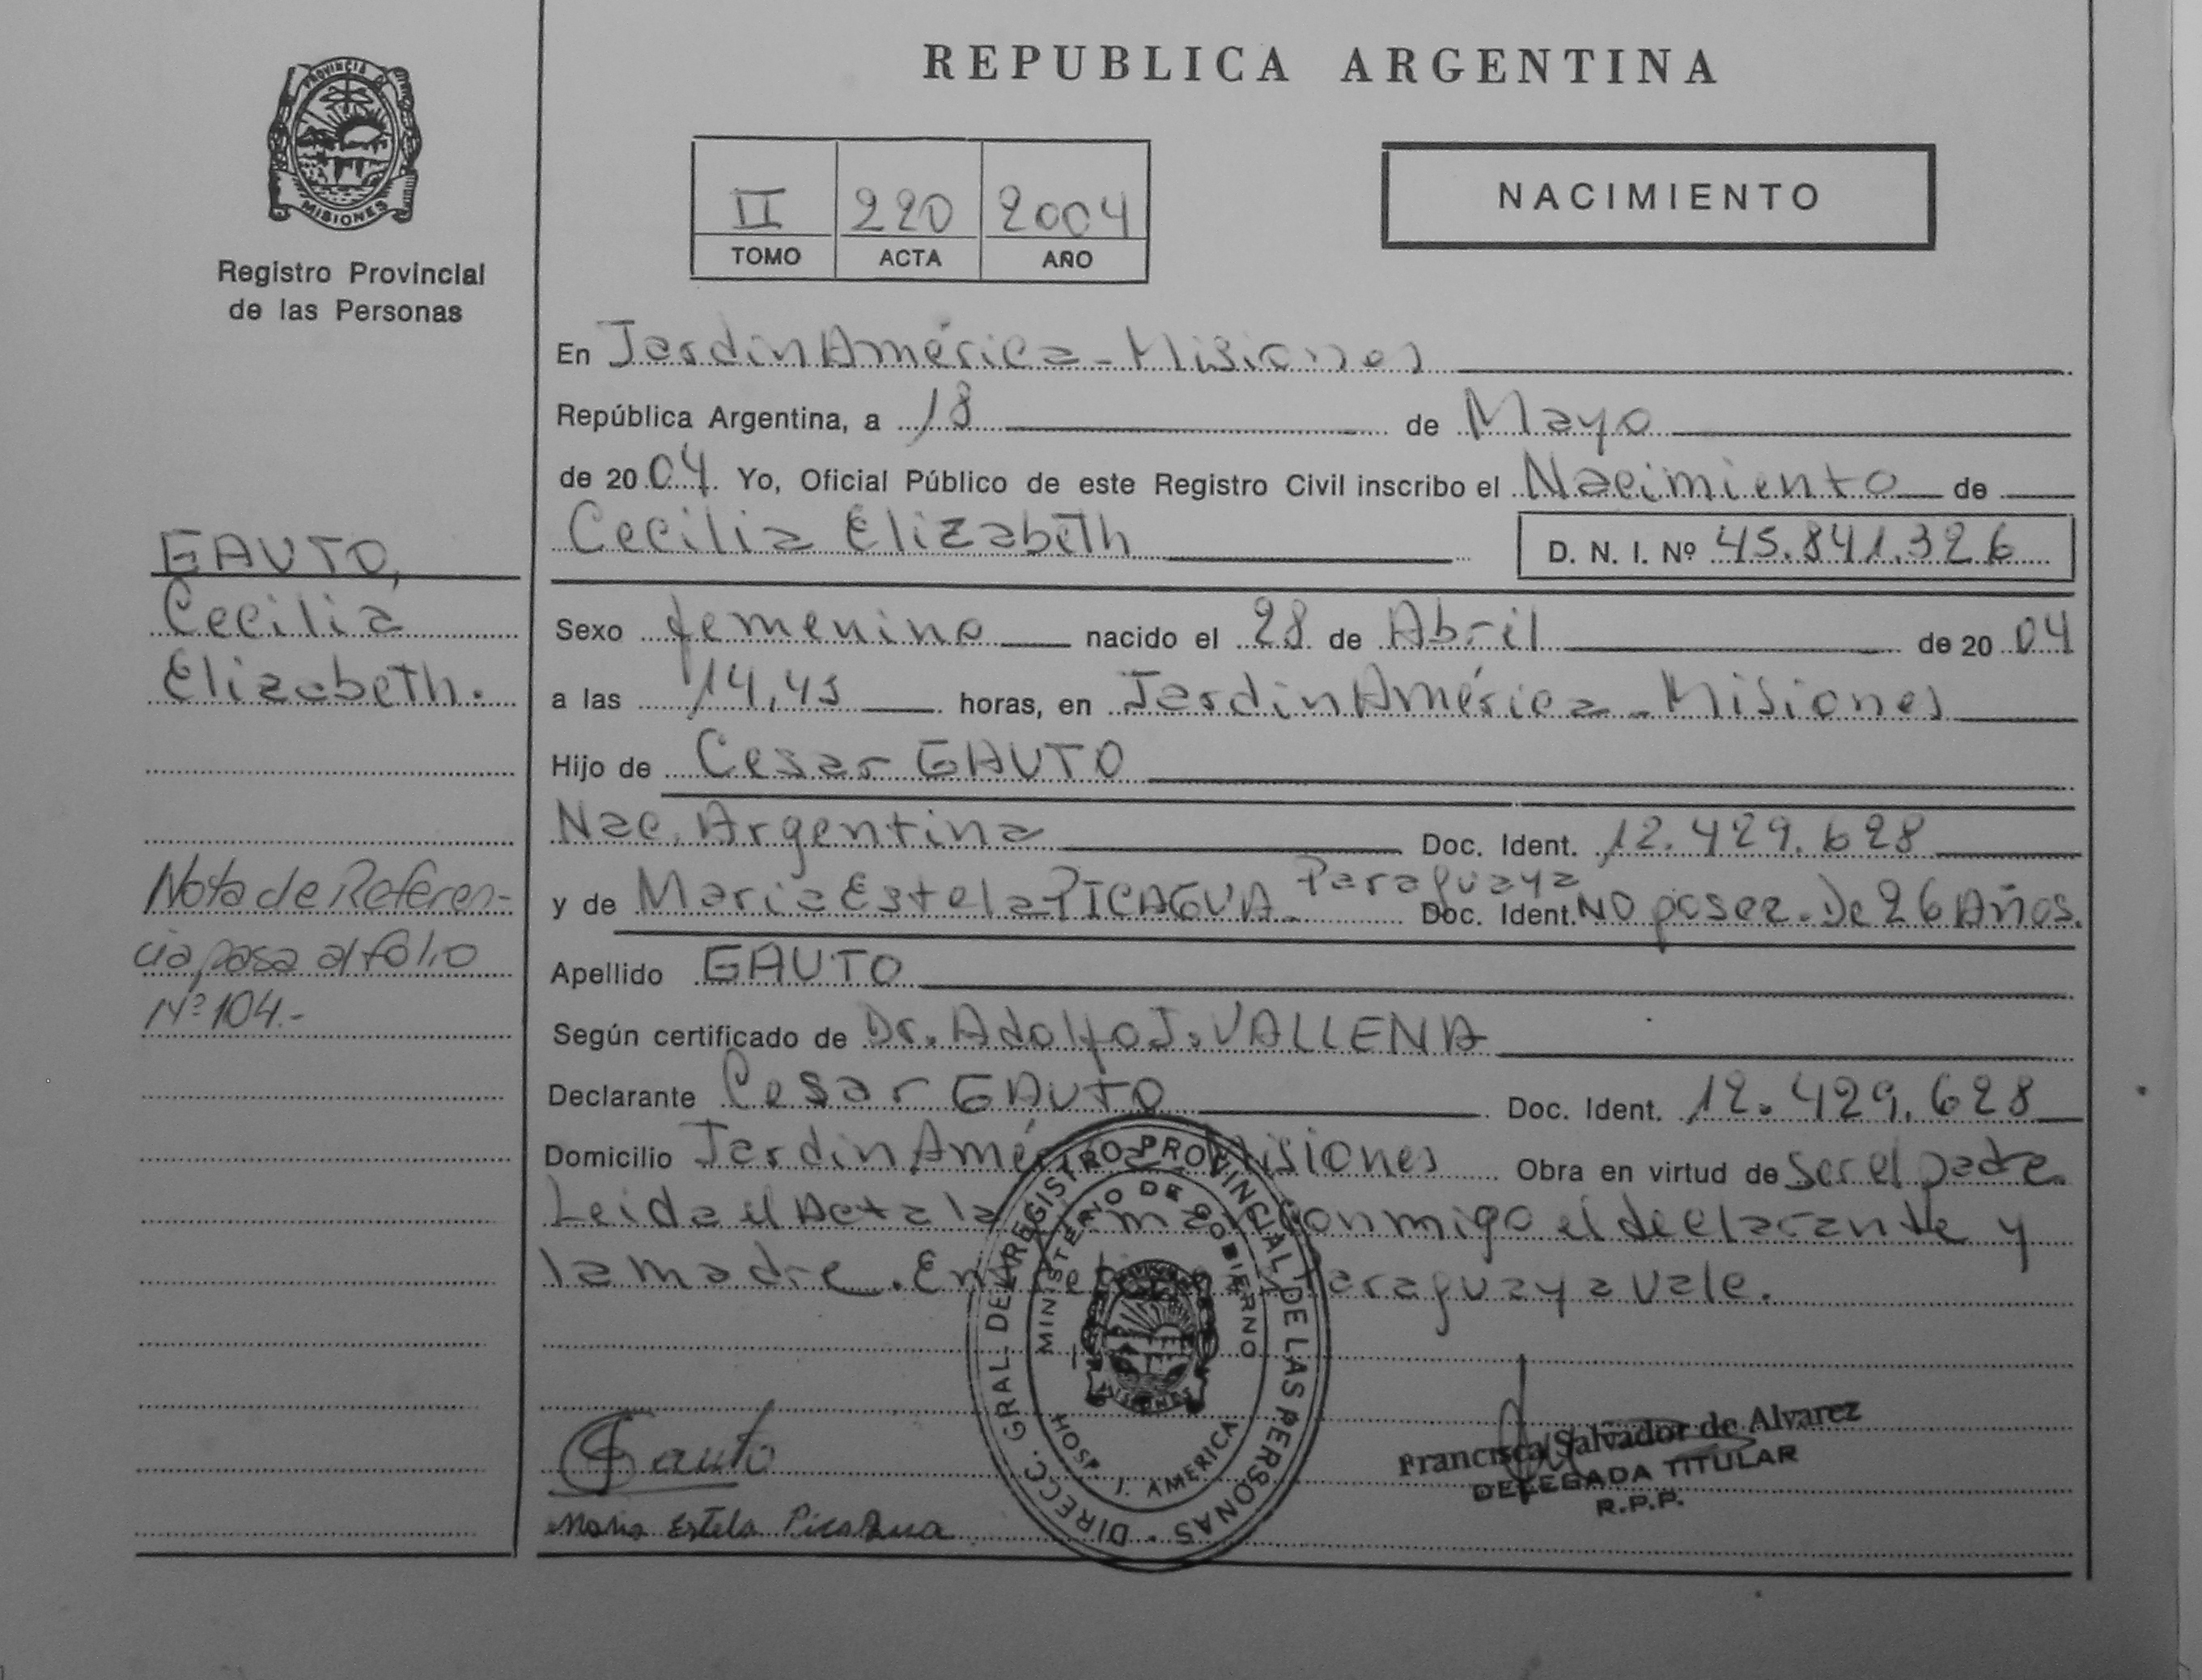 REPUBLICA ARGENTINA
PROVINCIA D
MISIONES
Registro Provincial
de las Personas
II 220 2004
TOMO ACTA AÑO
NACIMIENTO
En Jardin América - Misiones
República Argentina, a 18 de Mayo
de 2004. Yo, Oficial Público de este Registro Civil inscribo el Nacimiento de
Cecilia Elizabeth D. N. I. Nº 45.841.326
GAUTO,
Cecilia
Elizabeth.
Sexo femenino nacido el 28 de Abril de 2004
a las 14,45 horas, en Jardin América - Misiones
Hijo de Cesar GAUTO
Nac. Argentina Doc. Ident. 12.429.628
Paraguaya
y de Maria Estela PICAGUA. Doc. Ident. NO posee. De 26 Años.
Nota de Referen-
cia pasa al folio
Nº 104.-
Apellido GAUTO
Según certificado de Dr. Adolfo J. VALLENA
Declarante Cesar GAUTO Doc. Ident. 12.429.628
Domicilio Jardin Amé Misiones Obra en virtud de ser el padre.
Leida el Acta la conmigo el declarante y
la madre. Paraguaya vale.
DIRECC. GRAL. DEL REGISTRO PROVINCIAL DE LAS PERSONAS
MINISTERIO DE GOBIERNO
MISIONES
HOSP. J. AMERICA
Gauto
Maria Estela Picagua
Francisca Salvador de Alvarez
DELEGADA TITULAR
R.P.P.